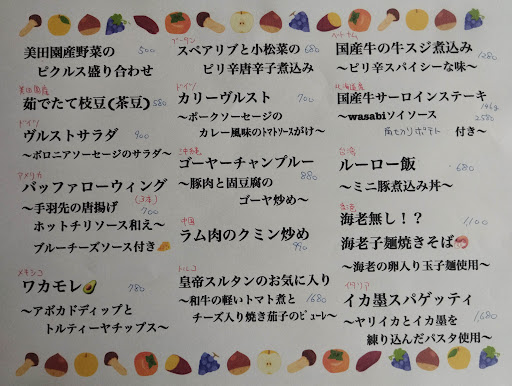 美田園産野菜の 500
ピクルス盛り合わせ
美田園産
茹でたて枝豆(茶豆) 580
ドイツ
ヴルストサラダ 900
～ボロニアソーセージのサラダ～
アメリカ
バッファローウィング
～手羽先の唐揚げ (3本)
700
ホットチリソース和え～
ブルーチーズソース付き
メキシコ
ワカモレ 780
～アボカドディップと
トルティーヤチップス～
ブータン
スペアリブと小松菜の 680
ピリ辛唐辛子煮込み
ドイツ
カリーヴルスト 700
～ポークソーセージの
カレー風味のトマトソースがけ～
沖縄
ゴーヤーチャンプルー
～豚肉と固豆腐の 880
ゴーヤ炒め～
中国
ラム肉のクミン炒め
990
トルコ
皇帝スルタンのお気に入り
～和牛の軽いトマト煮と 1680
チーズ入り焼き茄子のピューレ～
ベトナム
国産牛の牛スジ煮込み
～ピリ辛スパイシーな味～ 1280
北海道産
国産牛サーロインステーキ
146g
～wasabiソイソース 2580
付き～
台湾
ルーロー飯 680
～ミニ豚煮込み丼～
香港
海老無し！？ 1100
海老子麺焼きそば
～海老の卵入り玉子麺使用～
イタリア
イカ墨スパゲッティ
～ヤリイカとイカ墨を 1680
練り込んだパスタ使用～